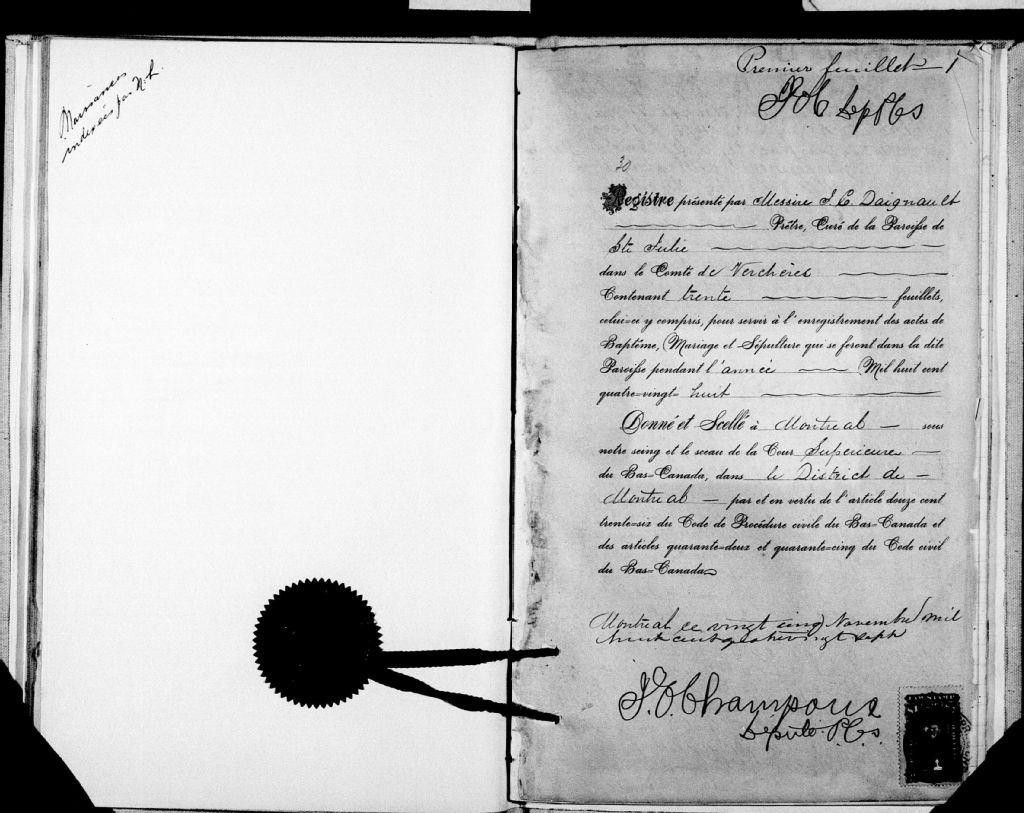 Mariages
indexés par N. L.
Premier feuillet 1
JOC Dep P.C.S
30
Registre présenté par Messire J. C. Daignault
Prêtre, Curé de la Paroisse de
Ste Julie
dans le Comté de Verchères
Contenant trente feuillets,
celui-ci y compris, pour servir à l'enregistrement des actes de
Baptême, Mariage et Sépulture qui se feront dans la dite
Paroisse pendant l'année Mil huit cent
quatre-vingt-huit
Donné et Scellé à Montreal sous
notre seing et le sceau de la Cour Supérieure
du Bas-Canada, dans le District de
Montreal par et en vertu de l'article douze cent
trente-six du Code de Procédure civile du Bas-Canada et
des articles quarante-deux et quarante-cinq du Code civil
du Bas-Canada
Montreal ce vingt cinq Novembre mil
huit cent quatrevingt sept
Député P.C.S.
1